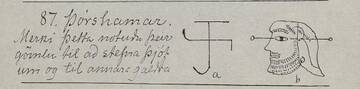 87. Þórshamar.
Merki þetta notuðu þeir
gömlu til að stefna þjóf
um og til annara galdra
a b